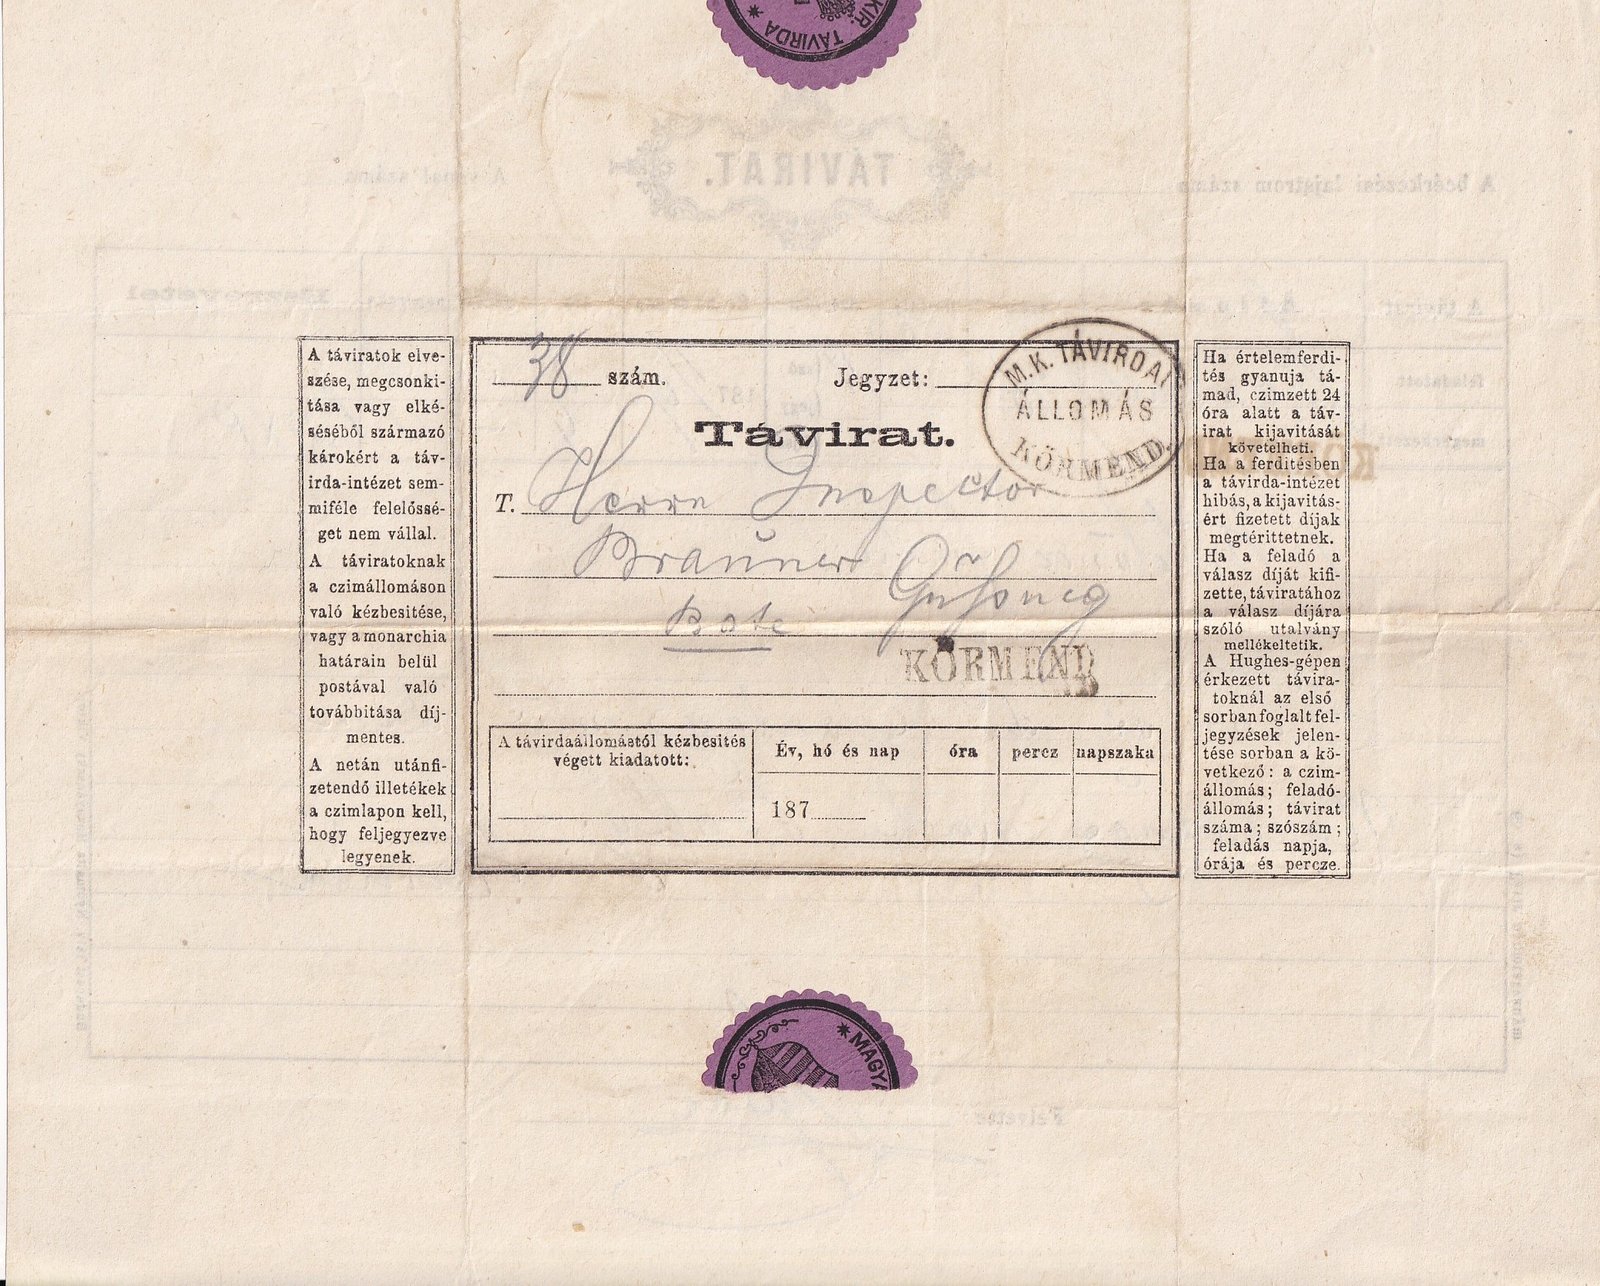 KIR. TÁVIRDA *
A táviratok elve-
szése, megcsonki-
tása vagy elké-
séséből származó
károkért a táv-
irda-intézet sem-
miféle felelőssé-
get nem vállal.
A táviratoknak
a czimállomáson
való kézbesitése,
vagy a monarchia
határain belül
postával való
továbbitása díj-
mentes.
A netán utánfi-
zetendő illetékek
a czimlapon kell,
hogy feljegyezve
legyenek.
38 szám.
Jegyzet:
M.K. TÁVIRDAI
ÁLLOMÁS
KÖRMEND.
Távirat.
T. Herrn Inspector
Brauner
KÖRMEND
A távirdaállomástól kézbesités
végett kiadatott:
Év, hó és nap
óra
percz
napszaka
187
Ha értelemferdi-
tés gyanuja tá-
mad, czimzett 24
óra alatt a táv-
irat kijavitását
követelheti.
Ha a ferditésben
a távirda-intézet
hibás, a kijavitás-
ért fizetett díjak
megtérittetnek.
Ha a feladó a
válasz díját kifi-
zette, táviratához
a válasz díjára
szóló utalvány
mellékeltetik.
A Hughes-gépen
érkezett távira-
toknál az első
sorban foglalt fel-
jegyzések jelen-
tése sorban a kö-
vetkező: a czim-
állomás; feladó-
állomás; távirat
száma; szószám;
feladás napja,
órája és percze.
* MAGYA